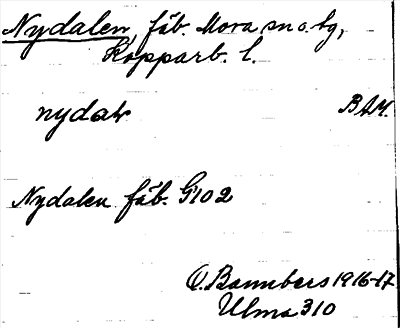 Nydalen, fäb. Mora sn o. tg,
Kopparb. l.
nydaḷṇ
Nydalen fäb. G102
O. Bannbers 1916-17
Ulma 310